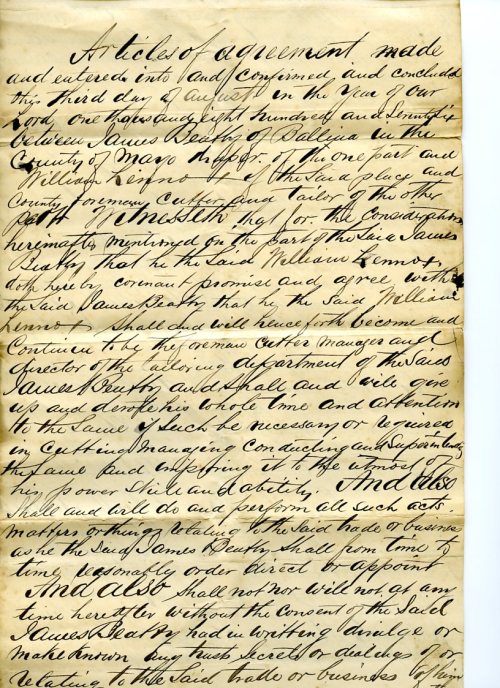 Articles of agreement made
and entered into and confirmed and concluded
this third day of august in the Year of our
Lord one thousand eight hundred and Seventy six
between James Beatty of Ballina in the
County of Mayo Draper of the one part and
William Lennox of the Said place and
County foreman Cutter and tailor of the other
Part Witnesseth that for the Consideration
hereinafter mentioned on the part of the Said James
Beatty that he the Said William Lennox
doth hereby covenant promise and agree with
the Said James Beatty that he the Said William
Lennox Shall and will henceforth become and
Continue to be the foreman Cutter manager and
director of the tailoring department of the Said
James Beatty and Shall and will give
up and devote his whole time and attention
to the Same if Such be necessary or required
in Cutting managing conducting and Superintending
the Same and improving it to the utmost of
his power Skill and ability. And also
Shall and will do and perform all Such acts
matters or things relating to the Said trade or business
as he the Said James Beatty Shall from time to
time reasonably order direct or appoint
And also Shall not nor will not at any
time hereafter without the Consent of the Said
James Beatty had in writting divulge or
make known any trusts Secrets or dealings of or
relating to the Said trade or business of him